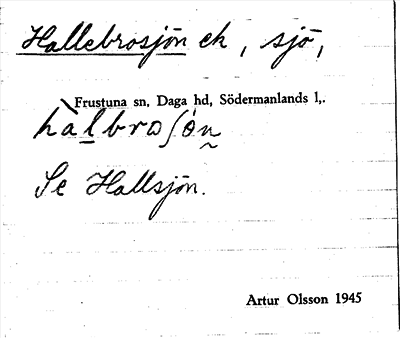 Hallebrosjön ek, sjö,
Frustuna sn, Daga hd, Södermanlands l,.
hàlbroʃòn
Se Hallsjön.
Artur Olsson 1945